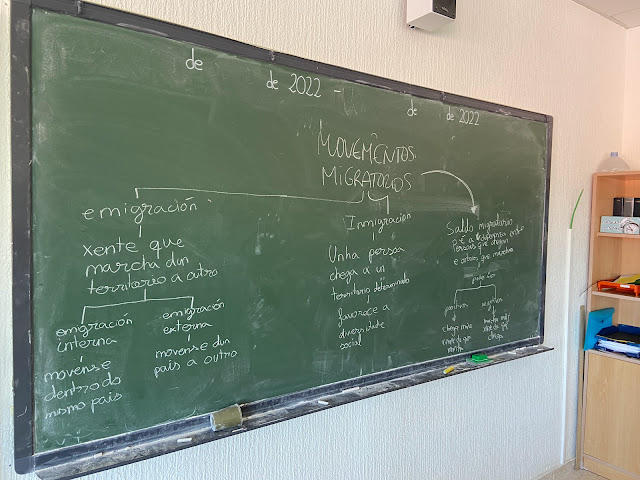 de
de 2022 -
de
de 2022
MOVEMENTOS
MIGRATORIOS
emigración
xente que
marcha dun
territorio a outro
emigración
interna
móvense
dentro do
mesmo país
emigración
externa
móvense dun
país a outro
Inmigración
Unha persoa
chega a un
territorio determinado
favorece a
diversidade
social
Saldo migratorio
é a diferenza entre
persoas que chegan
e outras que marchan
pode ser
positivo
chega máis
xente da que
marcha
negativo
marcha máis
xente da que
chega